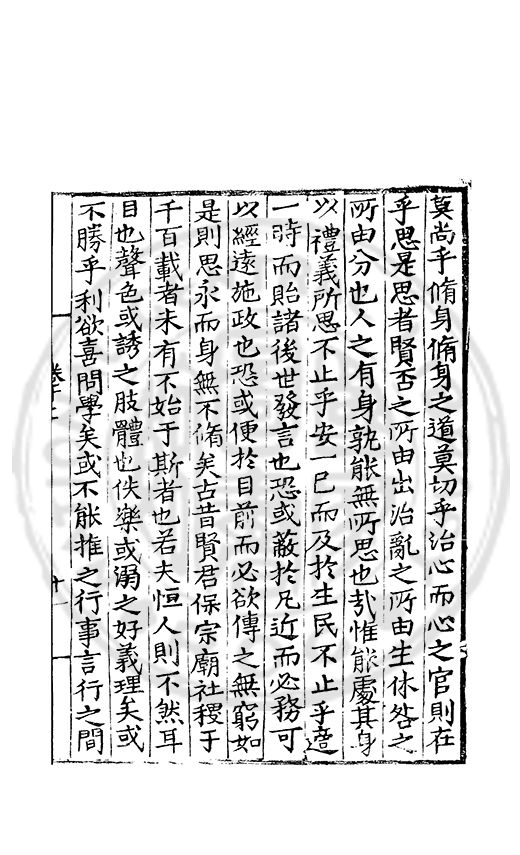 莫尚乎脩身脩身之道莫切乎治心而心之官則在
乎思是思者賢否之所由出治亂之所由生休咎之
所由分也人之有身孰能無所思也㢤惟能處其身
以禮義所思不止乎安一己而及於生民不止乎適
一時而貽諸後世發言也恐或蔽於凡近而必務可
以經遠施政也恐或便於目前而必欲傳之無窮如
是則思永而身無不脩矣古昔賢君保宗廟社稷于
千百載者未有不始于斯者也若夫恒人則不然耳
目也聲色或誘之肢體也佚樂或溺之好義理矣或
不勝乎利欲喜問學矣或不能推之行事言行之間
卷十二
十一